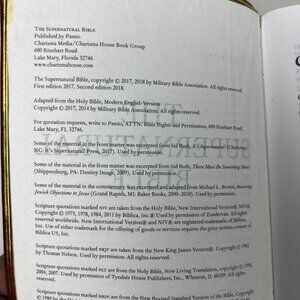 THE SUPERNATURAL BIBLE
Published by Passio
Charisma Media/Charisma House Book Group
600 Rinehart Road
Lake Mary, Florida 32746
www.charismahouse.com
The Supernatural Bible, copyright © 2017, 2018 by Military Bible Association. All rights reserved.
First edition 2017. Second edition 2018.
Adapted from the Holy Bible, Modern English Version
Copyright © 2014, 2017 by Military Bible Association. All rights reserved.
For quotation requests, write to Passio, ATTN: Bible Rights and Permissions, 600 Rinehart Road,
Lake Mary, FL 32746.
Some of the material in the front matter was excerpted from Sid Roth, It's Supernatural! (Charlotte,
NC: It's Supernatural Press, 2017). Used by permission.
Some of the material in the front matter was excerpted from Sid Roth, There Must Be Something More!
(Shippensburg, PA: Destiny Image, 2009). Used by permission.
Some of the material in the commentary was excerpted and adapted from Michael L. Brown, Answering
Jewish Objections to Jesus (Grand Rapids, MI: Baker Books, 2000–2010). Used by permission.
Scripture quotations marked NIV are taken from the Holy Bible, New International Version®, NIV®.
Copyright © 1973, 1978, 1984, 2011 by Biblica, Inc.® Used by permission of Zondervan. All rights
reserved worldwide. New International Version® and NIV® are registered trademarks of Biblica,
Inc. Use of either trademark for the offering of goods or services requires the prior written consent of
Biblica US, Inc.
Scripture quotations marked NKJV are taken from the New King James Version®. Copyright © 1982
by Thomas Nelson. Used by permission. All rights reserved.
Scripture quotations marked NLT are from the Holy Bible, New Living Translation, copyright © 1996,
2004, 2007. Used by permission of Tyndale House Publishers, Inc., Wheaton, IL 60189. All rights
reserved.
Scripture quotations marked NRSV are from the New Revised Standard Version of the Bible.